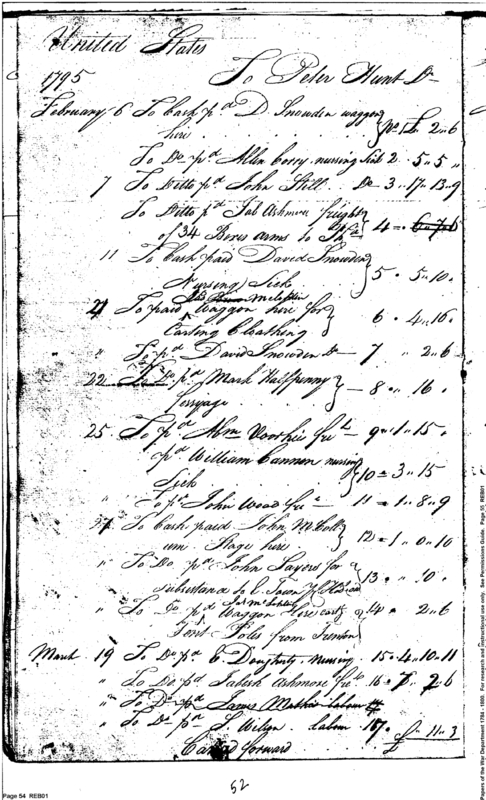 United States
1795 To Peter Hunt Dr
February 6 To Cash pd D. Snowden waggon
hire No 1 2 " 6
To Do pd Allen Corry nursing Sick 2 . 5 " 5 "
7 To Ditto pd John Still Do 3 " 17 . 13 " 9
To Ditto pd Jab Ashmore freight
of 34 Boxes arms to 4
11 To Cash paid David Snowden
Nursing Sick 5 " 5 " 10
21 To paid Waggon hire for
Carting Cloathing 6 " 4 " 16
" To pd David Snowden Do 7 " 2 " 6
22 To Do pd Mark Halfpenny
ferryage 8 " 16
25 To pd Abm Voorhis 9 " 1 " 15
pd William Cannon nursing
Sick 10 " 3 " 15
" To pd John Wood 11 " 1 " 8 " 9
27 To Cash paid John McColl
um Stage hire 12 " 1 " 0 " 10
" To Do pd John Sayers for
subsistance to 13 " 10
" To Do pd Waggon Hire cart
Tent Poles from Trenton 14 " 2 " 6
March 19 To Do pd C. Dougherty Nursing 15 " 4 " 10 " 11
" To Do pd Jabesh Ashmore 16 " 7 " 2 " 6
" To Do pd James Labour
" To Do pd J. Wilson Labour 11 " 3
Carried forward
52
Page 54 REB01
Papers of the War Department 1784 - 1800. For research and instructional use only. See Permissions Guide. Page 55 REB01